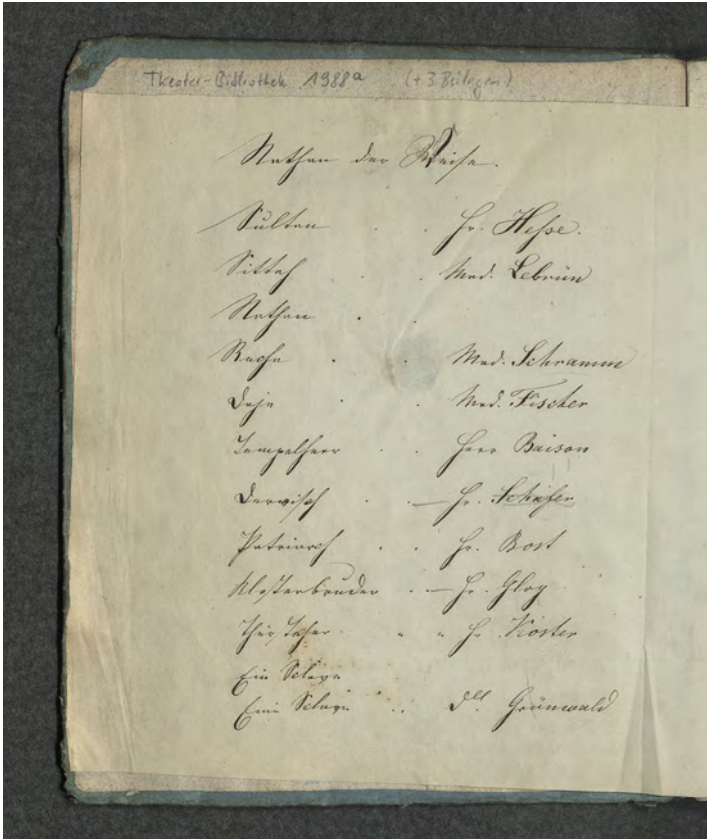 Theater-Bibliothek 1988a (+ 3. Beilagen)
Nathan der Weise.
Sultan . . Hr. Hesse.
Sittah . . Mad. Lebrün
Nathan . .
Recha . . Mad. Schramm
Daja . . Mad. Fischer
Tempelherr . Herr Baison
Derwisch . . — Hr. Schäfer
Patriarch . . Hr. Bost
Klosterbruder . — Hr. Gloy
Hr. Köster
Ein Sclave
Eine Sclavin . . Dlle. Grünwald